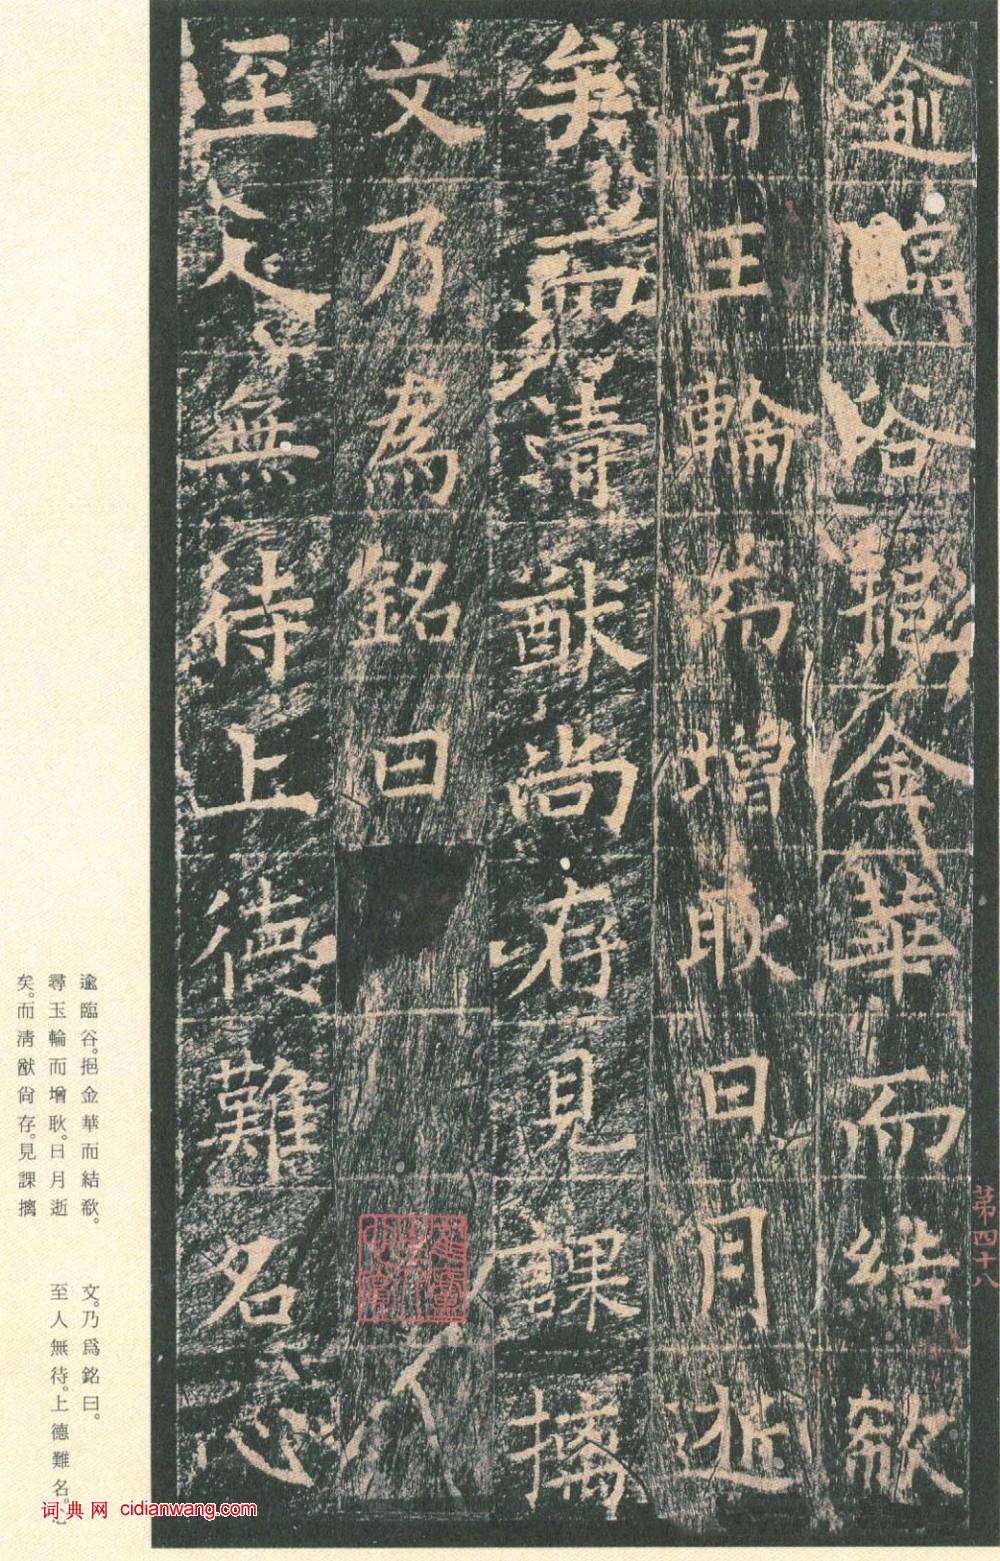 第四十八
逾臨谷挹金華而結欷
尋玉輪而增耿日月逝
矣而清猷尚存見課摛
文乃為銘曰
至人無待上德難名心
逾臨谷。挹金華而結欷。
尋玉輪而增耿。日月逝
矣。而清猷尚存。見課摛
文。乃爲銘曰。
至人無待。上德難名。
词典网 cidianwang.com